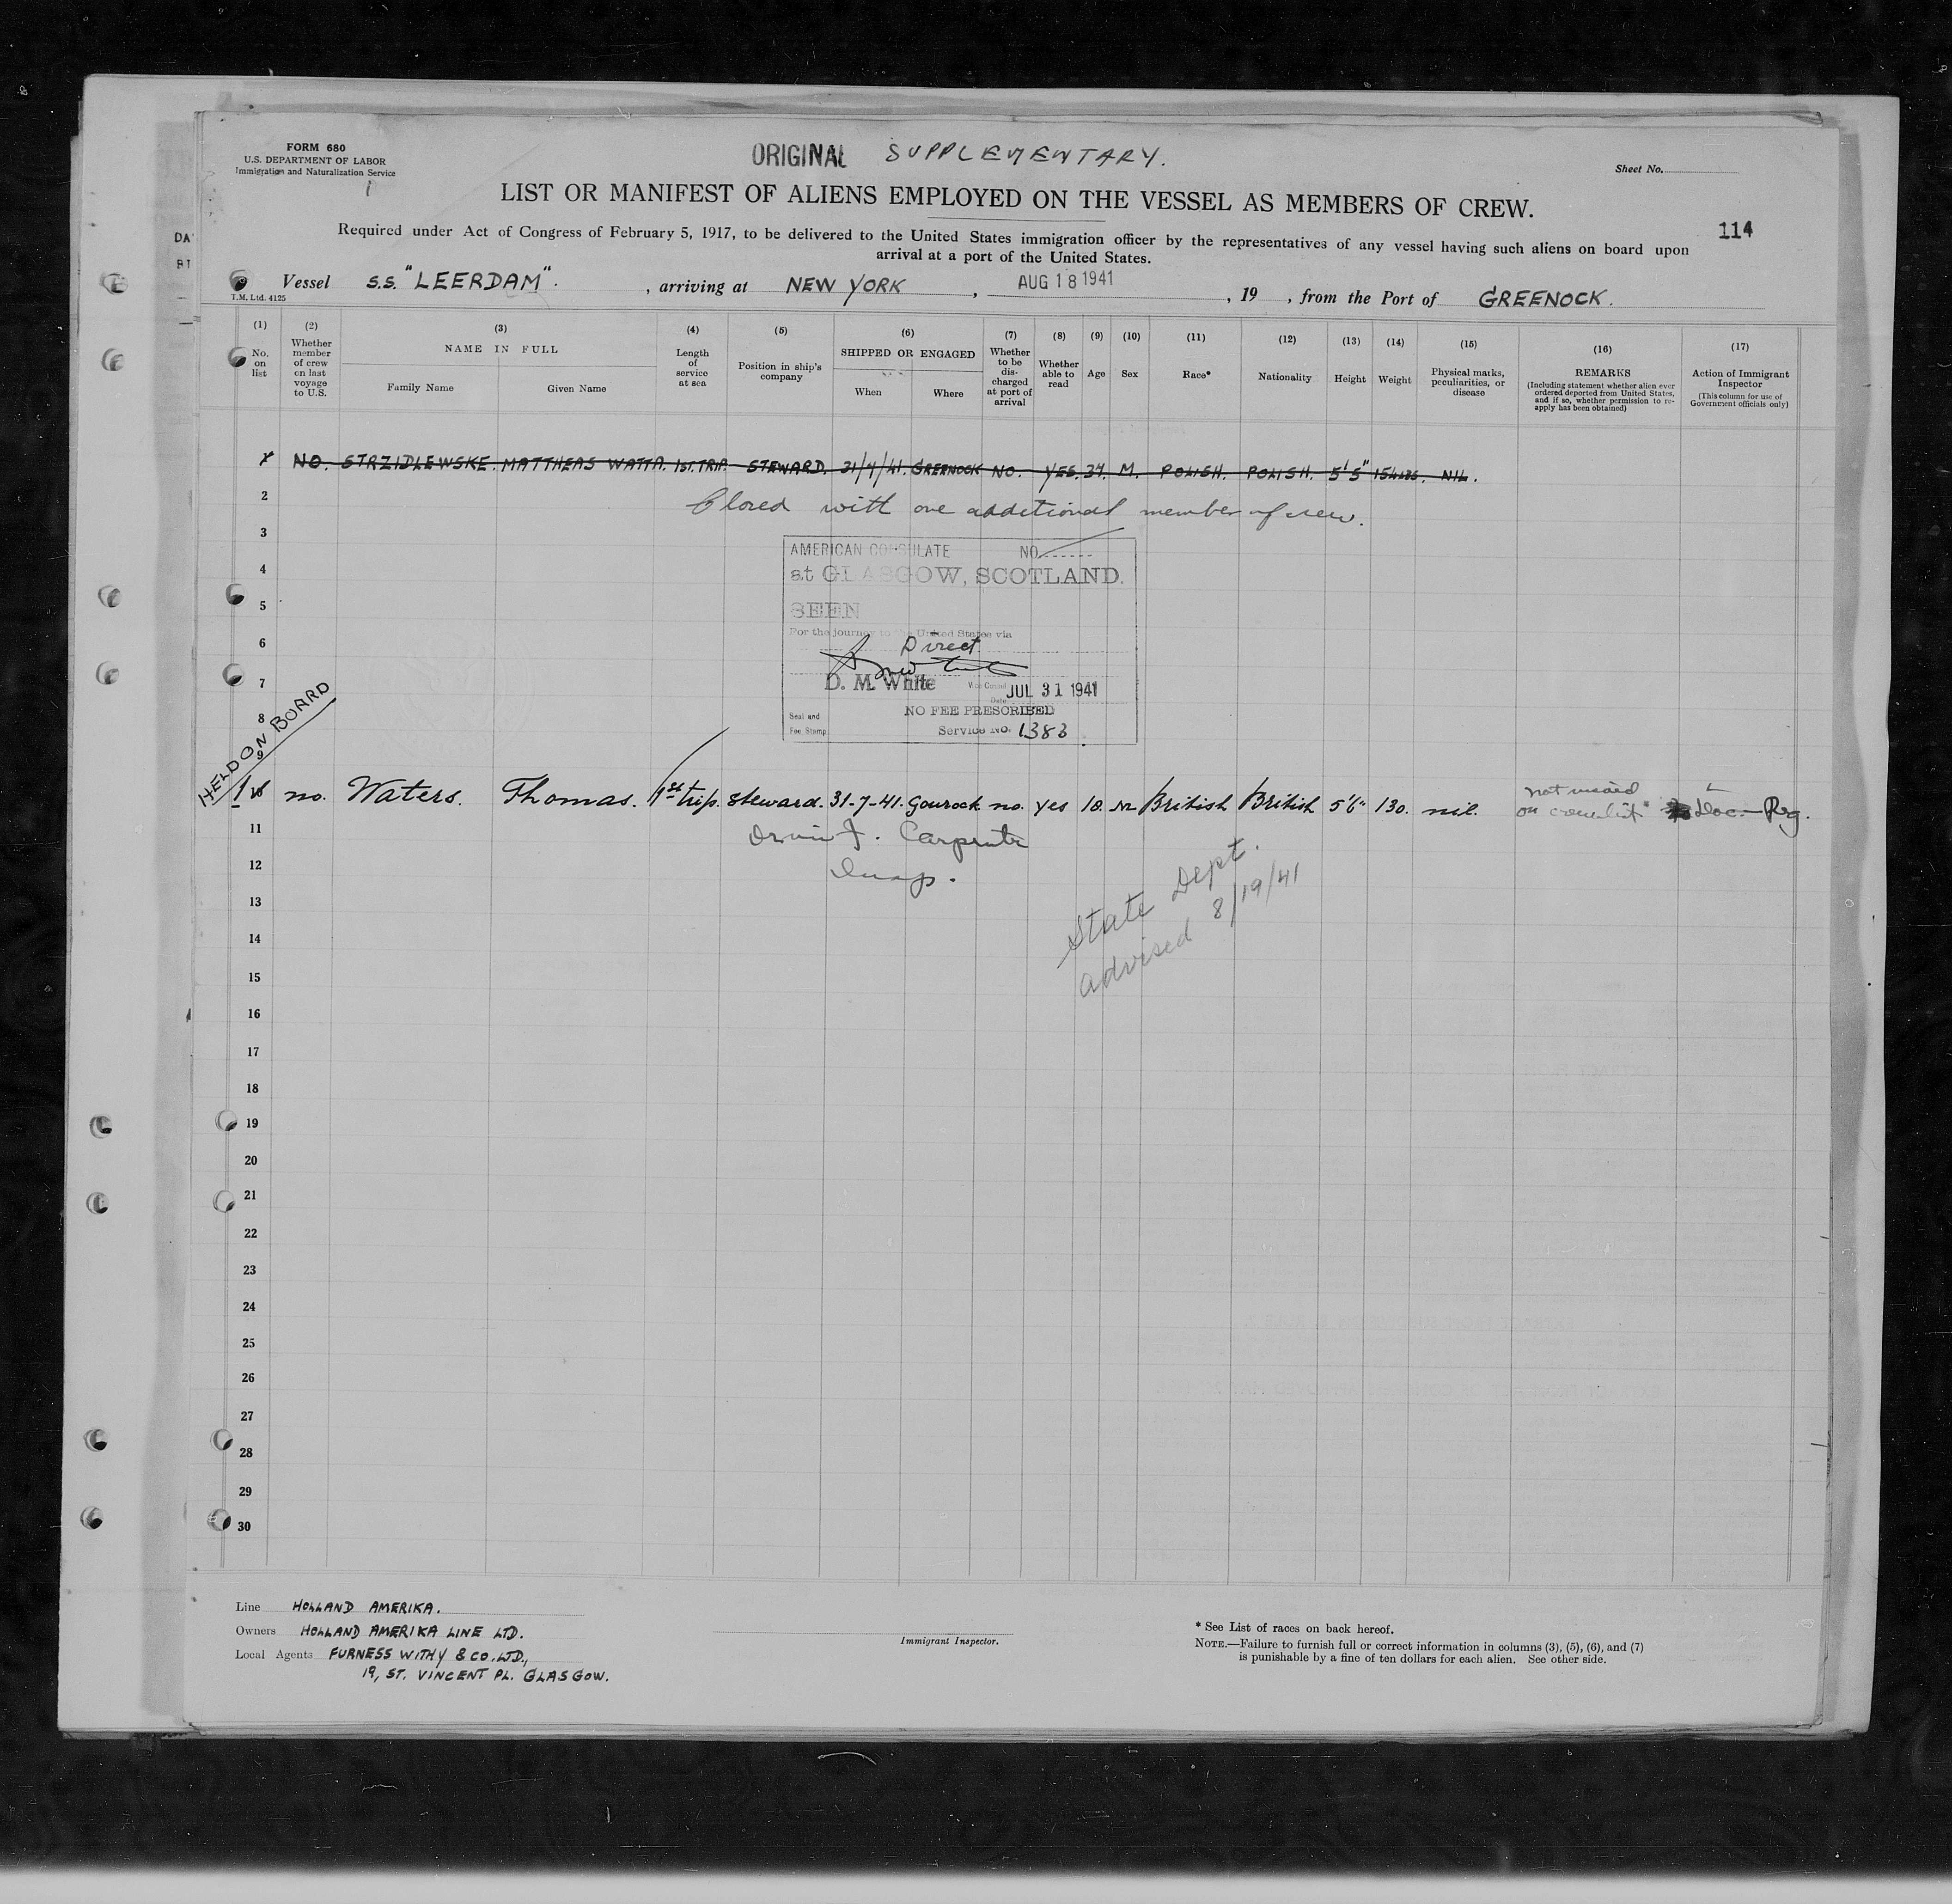 FORM 680
U.S. DEPARTMENT OF LABOR
Immigration and Naturalization Service
ORIGINAL SUPPLEMENTARY.
Sheet No.
LIST OR MANIFEST OF ALIENS EMPLOYED ON THE VESSEL AS MEMBERS OF CREW.
114
Required under Act of Congress of February 5, 1917, to be delivered to the United States immigration officer by the representatives of any vessel having such aliens on board upon
arrival at a port of the United States.
Vessel S.S. "LEERDAM". , arriving at NEW YORK , AUG 18 1941 , 19 , from the Port of GREENOCK.
T.M. Ltd. 4125
(1) No. on list
(2) Whether member of crew on last voyage to U.S.
(3) NAME IN FULL
Family Name
Given Name
(4) Length of service at sea
(5) Position in ship's company
(6) SHIPPED OR ENGAGED
When
Where
(7) Whether to be discharged at port of arrival
(8) Whether able to read
(9) Age
(10) Sex
(11) Race*
(12) Nationality
(13) Height
(14) Weight
(15) Physical marks, peculiarities, or disease
(16) REMARKS
(Including statement whether alien ever ordered deported from United States, and if so, whether permission to re-apply has been obtained)
(17) Action of Immigrant Inspector
(This column for use of Government officials only)
NO. STRZIDLEWSKE. MATTHEAS WATTA. 1ST.TRIP. STEWARD. 31/7/41. GREENOCK NO. YES. 37. M. POLISH. POLISH. 5'5" 154LBS. NIL.
2
Closed with one additional member of crew.
3
AMERICAN CONSULATE NO
4
at GLASGOW, SCOTLAND.
5
SEEN
For the journey to the United States via
6
Direct
7
D. M. White Vice Consul
JUL 31 1941
Date
8
NO FEE PRESCRIBED
Seal and
Fee Stamp
Service NO. 1383
9
HELD ON BOARD
1 no. Waters. Thomas. 1st trip. Steward. 31-7-41. Gourock no. yes 18. M British British 5'6" 130. nil. not visaed on crew list Doc.
11
Carpenter
12
Insp.
13
State Dept.
advised 8/19/41
14
15
16
17
18
19
20
21
22
23
24
25
26
27
28
29
30
Line HOLLAND AMERIKA.
Owners HOLLAND AMERIKA LINE LTD.
Local Agents FURNESS WITHY & CO. LTD.,
19, ST. VINCENT PL. GLASGOW.
Immigrant Inspector.
* See List of races on back hereof.
NOTE.—Failure to furnish full or correct information in columns (3), (5), (6), and (7)
is punishable by a fine of ten dollars for each alien. See other side.